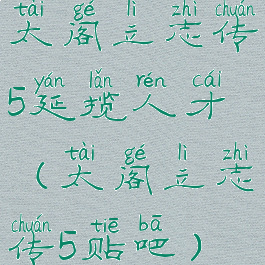 tài gé lì zhì chuán
太阁立志传
yán lǎn rén cái
5延揽人才
tài gé lì zhì
（太阁立志
chuán tiē bā
传5贴吧）